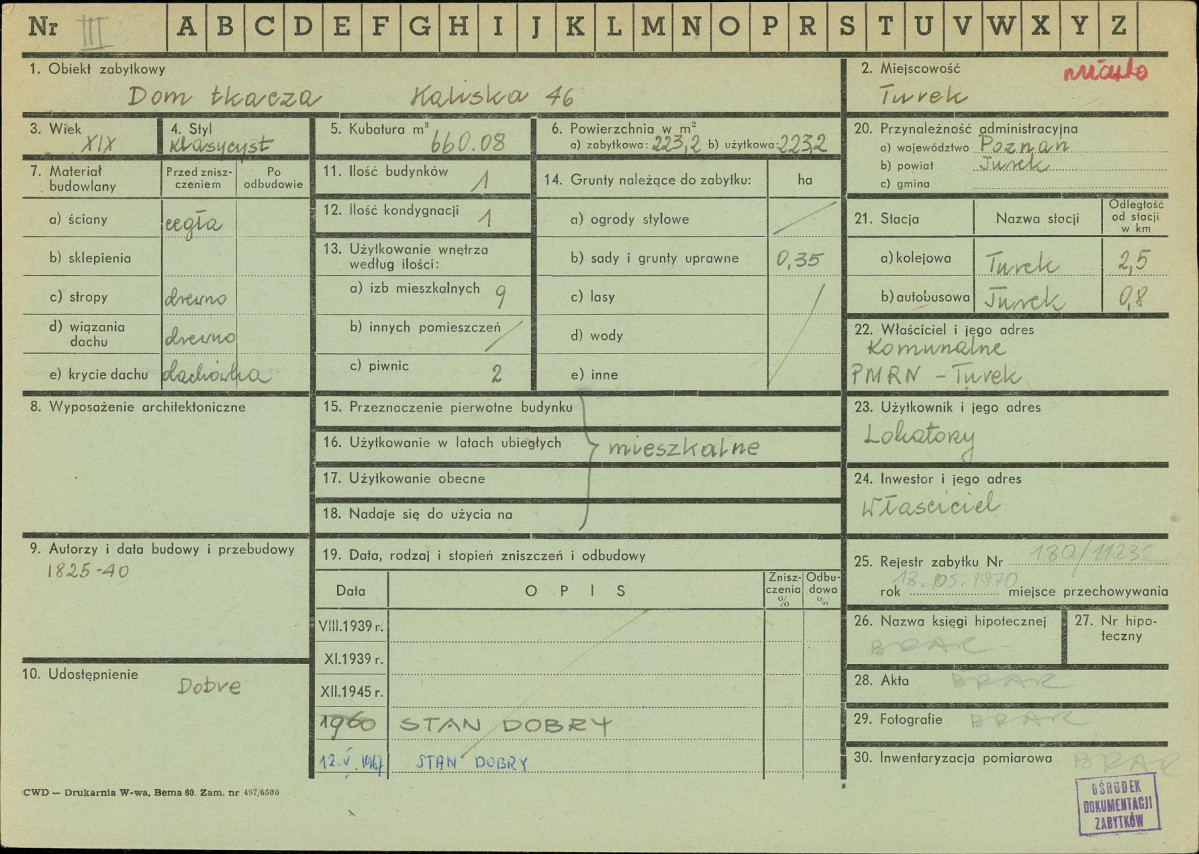 Nr III A B C D E F G H I J K L M N O P R S T U V W X Y Z
1. Obiekt zabytkowy
Dom tkacza Kaliska 46
2. Miejscowość miasto
Turek
3. Wiek
XIX
4. Styl
Klasycyst
5. Kubatura m³
660.08
6. Powierzchnia w m²
a) zabytkowa: 223,2 b) użytkowa: 223,2
7. Materiał budowlany
Przed znisz-
czeniem
Po
odbudowie
a) ściany cegła
b) sklepienia
c) stropy drewno
d) wiązania
dachu drewno
e) krycie dachu dachówka
8. Wyposażenie architektoniczne
9. Autorzy i data budowy i przebudowy
1825-40
10. Udostępnienie
Dobre
11. Ilość budynków 1
12. Ilość kondygnacji 1
13. Użytkowanie wnętrza
według ilości:
a) izb mieszkalnych 9
b) innych pomieszczeń /
c) piwnic 2
14. Grunty należące do zabytku: ha
a) ogrody stylowe /
b) sady i grunty uprawne 0,35
c) lasy
d) wody
e) inne
15. Przeznaczenie pierwotne budynku
16. Użytkowanie w latach ubiegłych
mieszkalne
17. Użytkowanie obecne
18. Nadaje się do użycia na
19. Data, rodzaj i stopień zniszczeń i odbudowy
Data OPIS
Znisz-
czenia
%
Odbu-
dowa
%
VIII.1939 r.
XI.1939 r.
XII.1945 r.
1960 STAN DOBRY
12.V.1967 STAN DOBRY
20. Przynależność administracyjna
a) województwo Poznań
b) powiat Turek
c) gmina
21. Stacja Nazwa stacji
Odległość
od stacji
w km
a) kolejowa Turek 2,5
b) autobusowa Turek 0,8
22. Właściciel i jego adres
Komunalne
PMRN – Turek
23. Użytkownik i jego adres
Lokatory
24. Inwestor i jego adres
Właściciel
25. Rejestr zabytku Nr
rok 13.05.1970 miejsce przechowywania
26. Nazwa księgi hipotecznej
BRAK
27. Nr hipo-
teczny
28. Akta BRAK
29. Fotografie BRAK
30. Inwentaryzacja pomiarowa BRAK
CWD — Drukarnia W-wa, Bema 60. Zam. nr 497/6500
OŚRODEK
DOKUMENTACJI
ZABYTKÓW